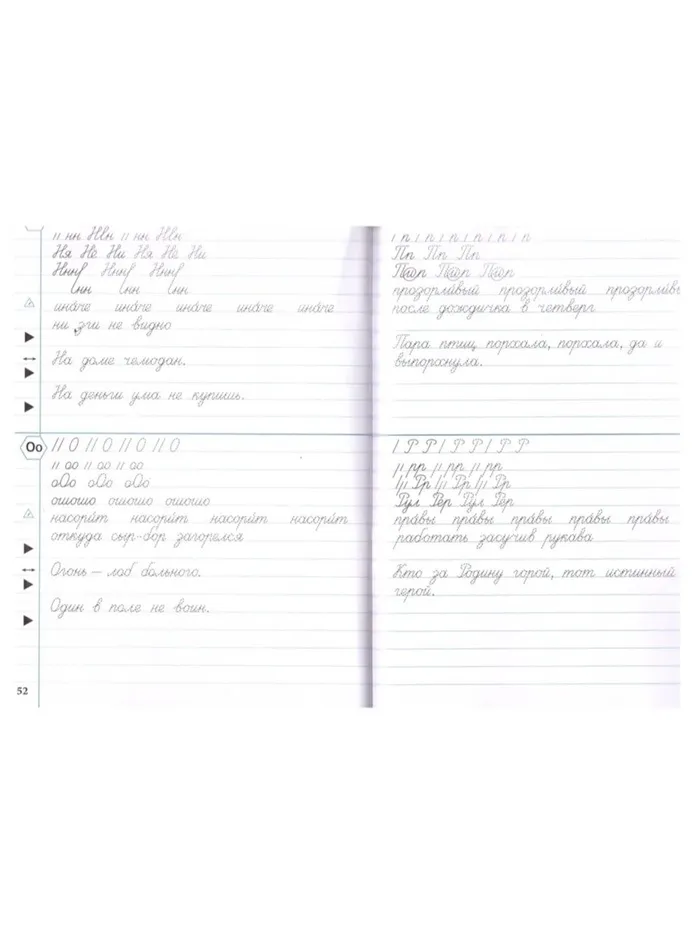 // нн Нвн // нн Нвн
Ня Не Ни Ня Не Ни
Ннн Ннн Ннн
нн нн нн
ина́че ина́че ина́че ина́че ина́че
ни зги не видно
На доме чемодан.
На деньги ума не купишь.
Оо
// О // О // О // О
// оо // оо // оо
оОо оОо оОо
ошошо ошошо ошошо
насори́т насори́т насори́т насори́т
откуда сыр-бор загорелся
Огонь — лоб больного.
Один в поле не воин.
52
/ п / п / п / п / п / п / п
Пп Пп Пп
П@п П@п П@п
прозорли́вый прозорли́вый прозорли́вы
после дождичка в четверг
Пара птиц порхала, порхала, да и
выпорхнула.
/ Р Р / Р Р / Р Р
рр рр рр
Рр Рр Рр
Рул Рер Рул Рер
пра́вы пра́вы пра́вы пра́вы пра́вы
работать засучив рукава
Кто за Родину горой, тот истинный
герой.